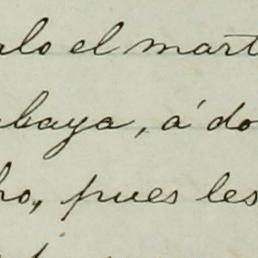 alo el mart
abaya, á do
ho, pues les